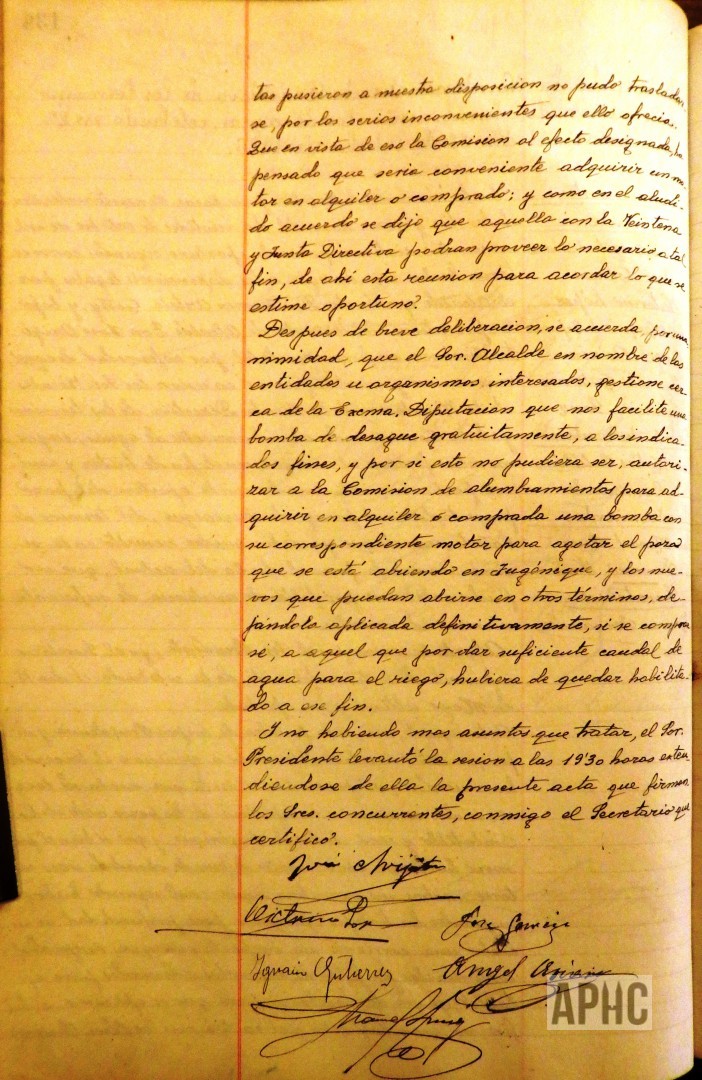 tas pusieron a nuestra disposicion no pudo trasladar
se, por los serios inconvenientes que ello ofrecia.
Que en vista de eso la Comision al efecto designada, ha
pensado que seria conveniente adquirir un mo-
tor en alquiler o comprado; y como en el aludi-
do acuerdo se dijo que aquella con la Veintena
y Junta Directiva podran proveer lo necesario a tal
fin, de ahi esta reunion para acordar lo que se
estime oportuno.
Despues de breve deliberacion, se acuerda por una
nimidad, que el Sor. Alcalde en nombre de las
entidades u organismos interesados, gestione cer-
ca de la Excma. Diputacion que nos facilite una
bomba de desague gratuitamente, a los indica-
dos fines, y por si esto no pudiera ser, autori-
zar a la Comision de alumbramientos para ad-
quirir en alquiler o comprada una bomba con
su correspondiente motor para agotar el pozo
que se está abriendo en, y los nue-
vos que puedan abrirse en otros términos, de-
jándola aplicada definitivamente, si se compra
se, a aquel que por dar suficiente caudal de
agua para el riego, hubiera de quedar habilita-
do a ese fin.
Y no habiendo mas asuntos que tratar, el Sor.
Presidente levantó la sesion a las 19'30 horas exten
diendose de ella la presente acta que firman
los Sres. concurrentes, conmigo el Secretario que
certifico.
José
José
Gutierrez Angel
APHS